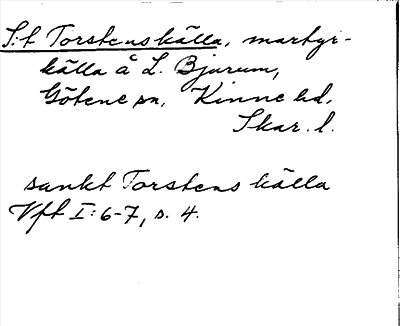 S:t Torstens källa, martyr-
källa å L. Bjurum,
Götene sn, Kinne hd,
Skar. l.
sankt Torstens källa
Vft I:6-7, s. 4.